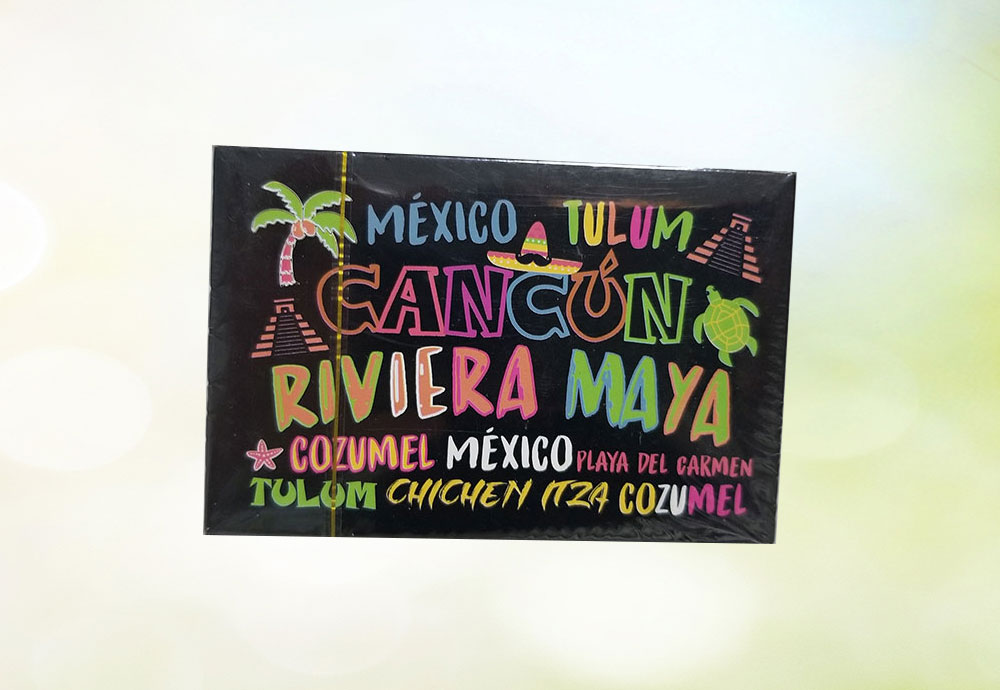 MÉXICO TULUM
CANCÚN
RIVIERA MAYA
COZUMEL MÉXICO PLAYA DEL CARMEN
TULUM CHICHEN ITZA COZUMEL